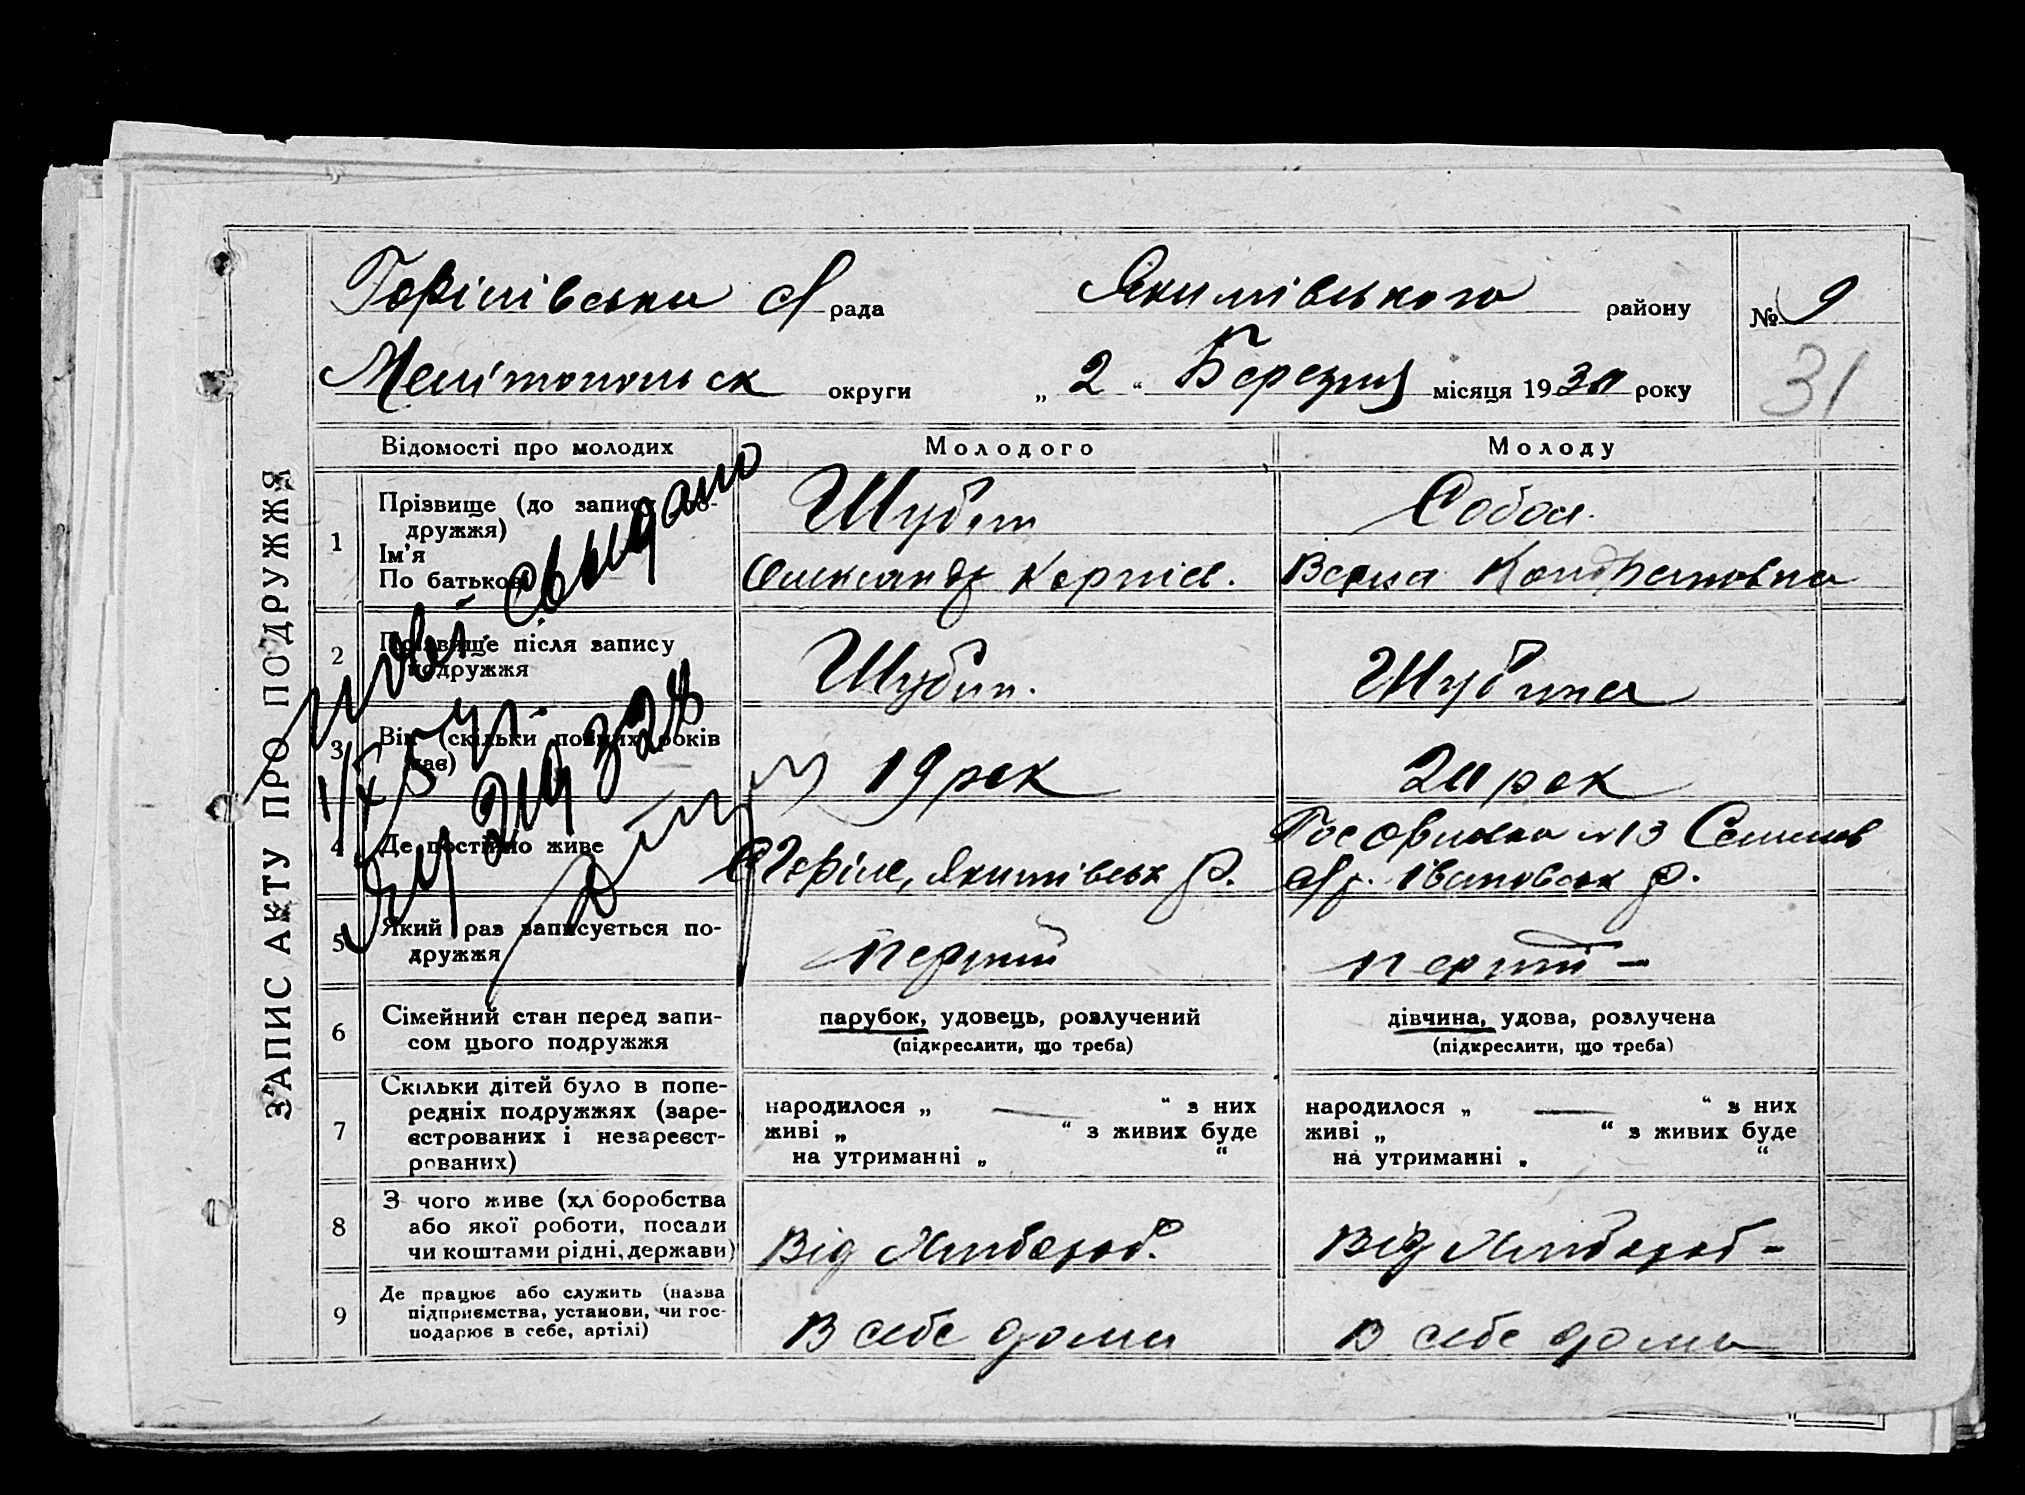 ЗАПИС АКТУ ПРО ПОДРУЖЖЯ
Горілівська с/рада Якимівського району № 9
Мелітопольск округи „ 2 “ Березня місяця 1930 року 31
Відомості про молодих Молодого Молоду
1 Прізвище (до запису по-
дружжя) Шубин Собол.
Ім'я
По батькові Олександр Корнієв.
Кондратовна
2 Прізвище після запису
подружжя Шубин. Шубина
3 Вік (скільки повних років
має) 19 рок 20 рок
4 Де постійно живе
с Горіле, Якимівськ р. с/р. Івановськ р.
5 Який раз записується по-
дружжя перший перший –
6 Сімейний стан перед запи-
сом цього подружжя
парубок, удовець, розлучений
(підкреслити, що треба)
дівчина, удова, розлучена
(підкреслити, що треба)
7 Скільки дітей було в попе-
редніх подружжях (заре-
єстрованих і незареєст-
рованих)
народилося „ — “ з них
живі „ “ з живих буде
на утриманні „ “
народилося „ — “ з них
живі „ “ з живих буде
на утриманні „ “
8 З чого живе (хліборобства
або якої роботи, посади
чи коштами рідні, держави)
Від Хлібороб.
Від Хлібороб –
9 Де працює або служить (назва
підприємства, установи, чи гос-
подарює в себе, артілі)
В себе дома
В себе дома